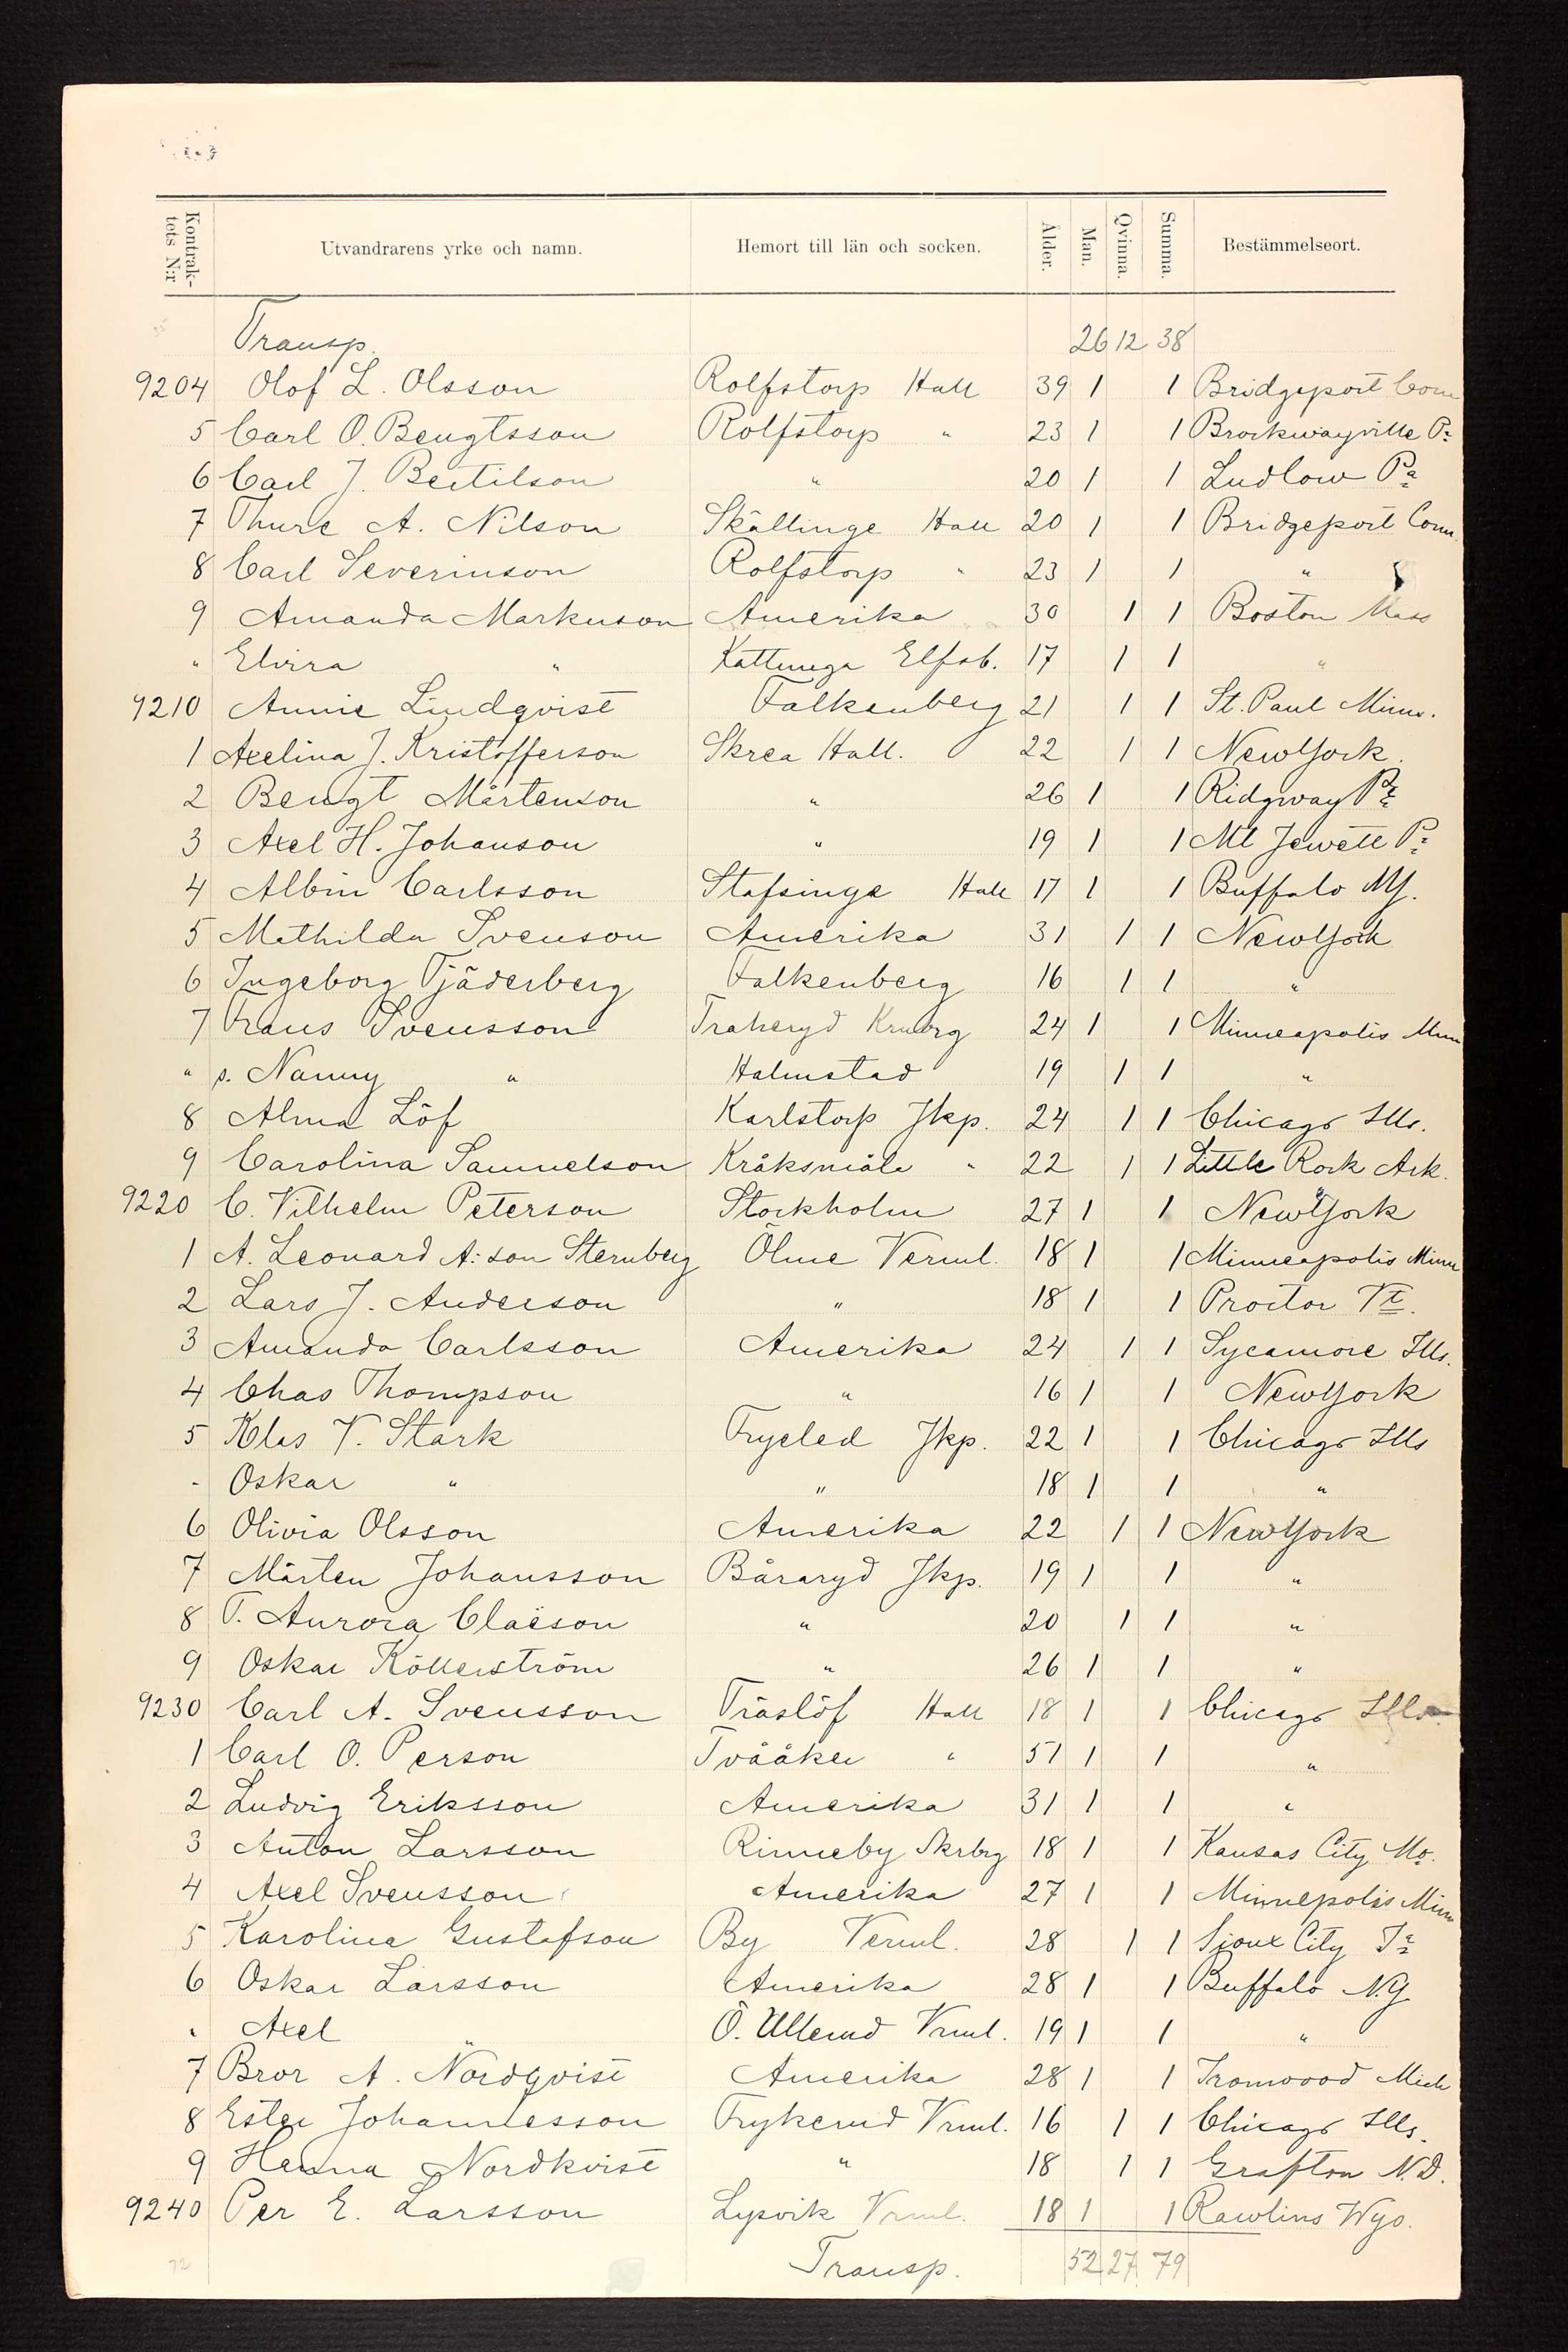 Kontrak-
tets N:r
Utvandrarens yrke och namn.
Hemort till län och socken.
Ålder.
Man.
Qvinna.
Summa.
Bestämmelseort.
Transp. 26 12 38
9204 Olof L. Olsson Rolfstorp Hall 39 1 1 Bridgeport Conn
5 Carl O. Bengtsson Rolfstorp " 23 1 1 Brockwayville Pa
6 Carl J. Bertilson " 20 1 1 Ludlow Pa
7 Thure A. Nilson Skällinge Hall 20 1 1 Bridgeport Conn.
8 Carl Severinson Rolfstorp " 23 1 1 "
9 Amanda Markuson Amerika 30 1 1 Boston Mass
" Elvira " Kattunga Elfsb. 17 1 1 "
9210 Annie Lindqvist Falkenberg 21 1 1 St. Paul Minn.
1 Axelina J. Kristofferson Skrea Hall. 22 1 1 NewYork.
2 Bengt Mårtenson " 26 1 1 Ridgway Pa
3 Axel H. Johanson " 19 1 1 Mt Jewett Pa
4 Albin Carlsson Stafsinge Hall 17 1 1 Buffalo NY.
5 Mathilda Svenson Amerika 31 1 1 NewYork
6 Ingeborg Tjäderberg Falkenberg 16 1 1 "
7 Frans Svensson Traheryd Krnbrg 24 1 1 Minneapolis Minn
" s. Nanny " Halmstad 19 1 1 "
8 Alma Löf Karlstorp Jkp. 24 1 1 Chicago Ills.
9 Carolina Samuelson Kråksmåla " 22 1 1 Little Rock Ark.
9220 C. Vilhelm Peterson Stockholm 27 1 1 NewYork
1 A. Leonard A:son Sternberg Ölme Verml. 18 1 1 Minneapolis Minn
2 Lars J. Anderson " 18 1 1 Proctor Vt.
3 Amanda Carlsson Amerika 24 1 1 Sycamore Ills.
4 Chas Thompson " 16 1 1 NewYork
5 Klas V. Stark Fryeled Jkp. 22 1 1 Chicago Ills
" Oskar " " 18 1 1 "
6 Olivia Olsson Amerika 22 1 1 NewYork
7 Mårten Johansson Båraryd Jkp. 19 1 1 "
8 T. Aurora Claëson " 20 1 1 "
9 Oskar Köllerström " 26 1 1 "
9230 Carl A. Svensson Träslöf Hall 18 1 1 Chicago Ills
1 Carl O. Person Tvååker " 51 1 1 "
2 Ludvig Eriksson Amerika 31 1 1 "
3 Anton Larsson Rinneby Skrbrg 18 1 1 Kansas City Mo.
4 Axel Svensson Amerika 27 1 1 Minnepolis Minn
5 Karolina Gustafson By Verml. 28 1 1 Sioux City Ia
6 Oskar Larsson Amerika 28 1 1 Buffalo N.Y.
" Axel " Ö. Ullerud Vrml. 19 1 1 "
7 Bror A. Nordqvist Amerika 28 1 1 Ironwood Mich
8 Ester Johannesson Frykerud Vrml. 16 1 1 Chicago Ills.
9 Hanna Nordkvist " 18 1 1 Grafton N.D.
9240 Per E. Larsson Lysvik Vrml. 18 1 1 Rawlins Wyo.
72 Transp. 52 27 79